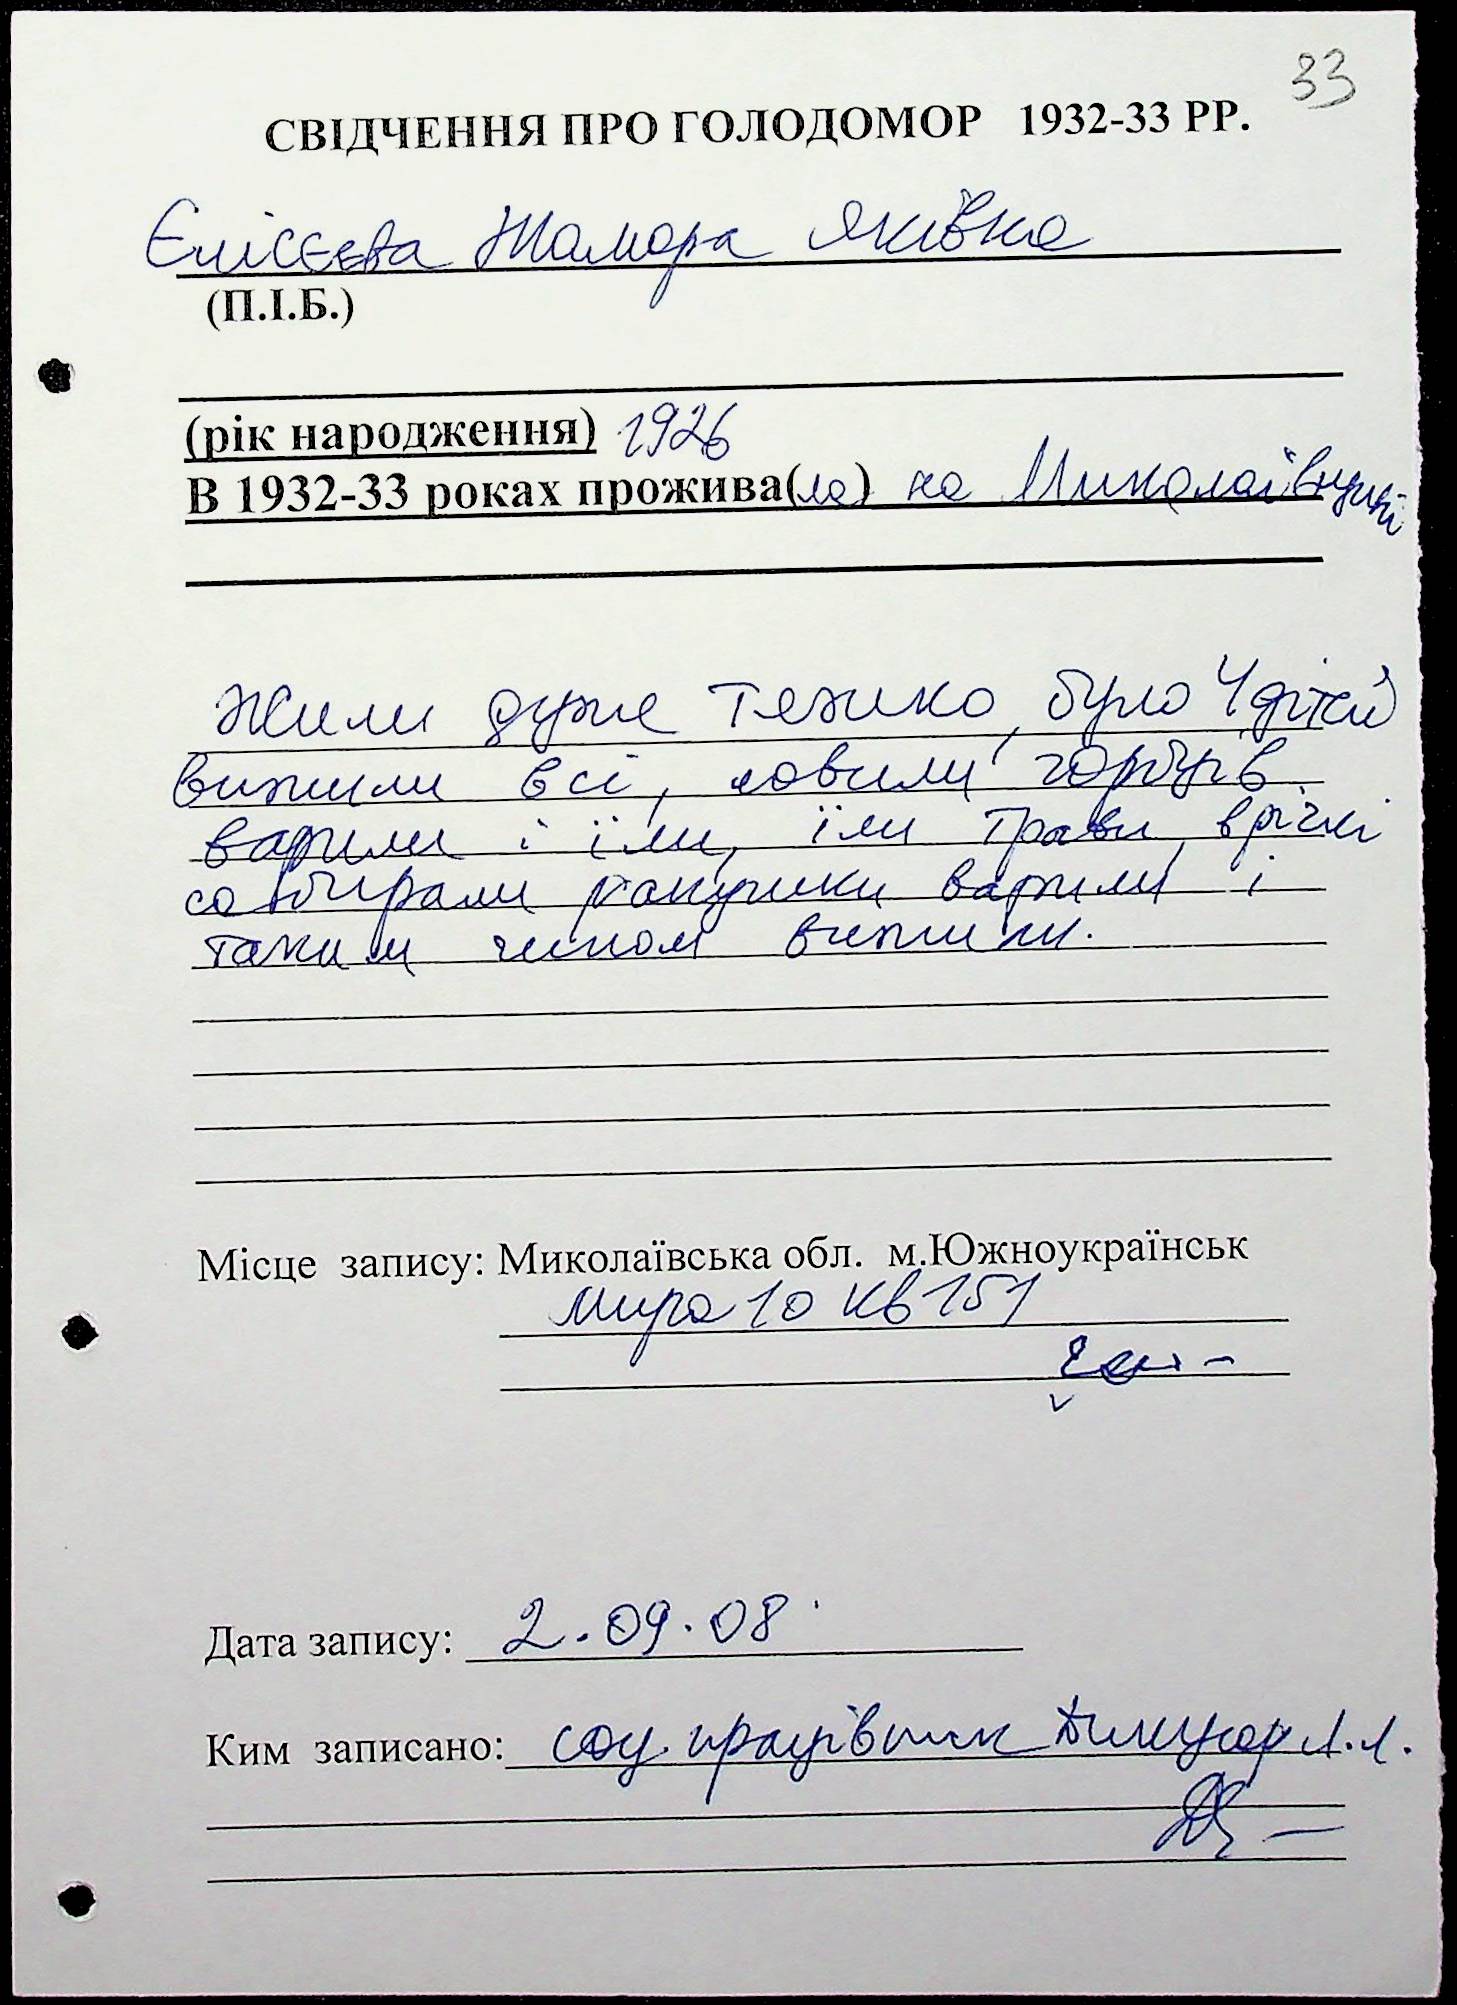 33
СВІДЧЕННЯ ПРО ГОЛОДОМОР 1932-33 РР.
Єлісєєва Тамара Яківна
(П.І.Б.)
(рік народження) 1926
В 1932-33 роках прожива(ла) на Миколаївщині
Жили дуже тяжко, було 4 дітей
вижили всі, ловили горбців
варили і їли, їли трави, в річкі
собирали ракушки варили і
таким чином вижили.
Місце запису: Миколаївська обл. м.Южноукраїнськ
Мира 10 кв 151
Дата запису: 2.09.08
Ким записано: соц. працівник Л.Л.